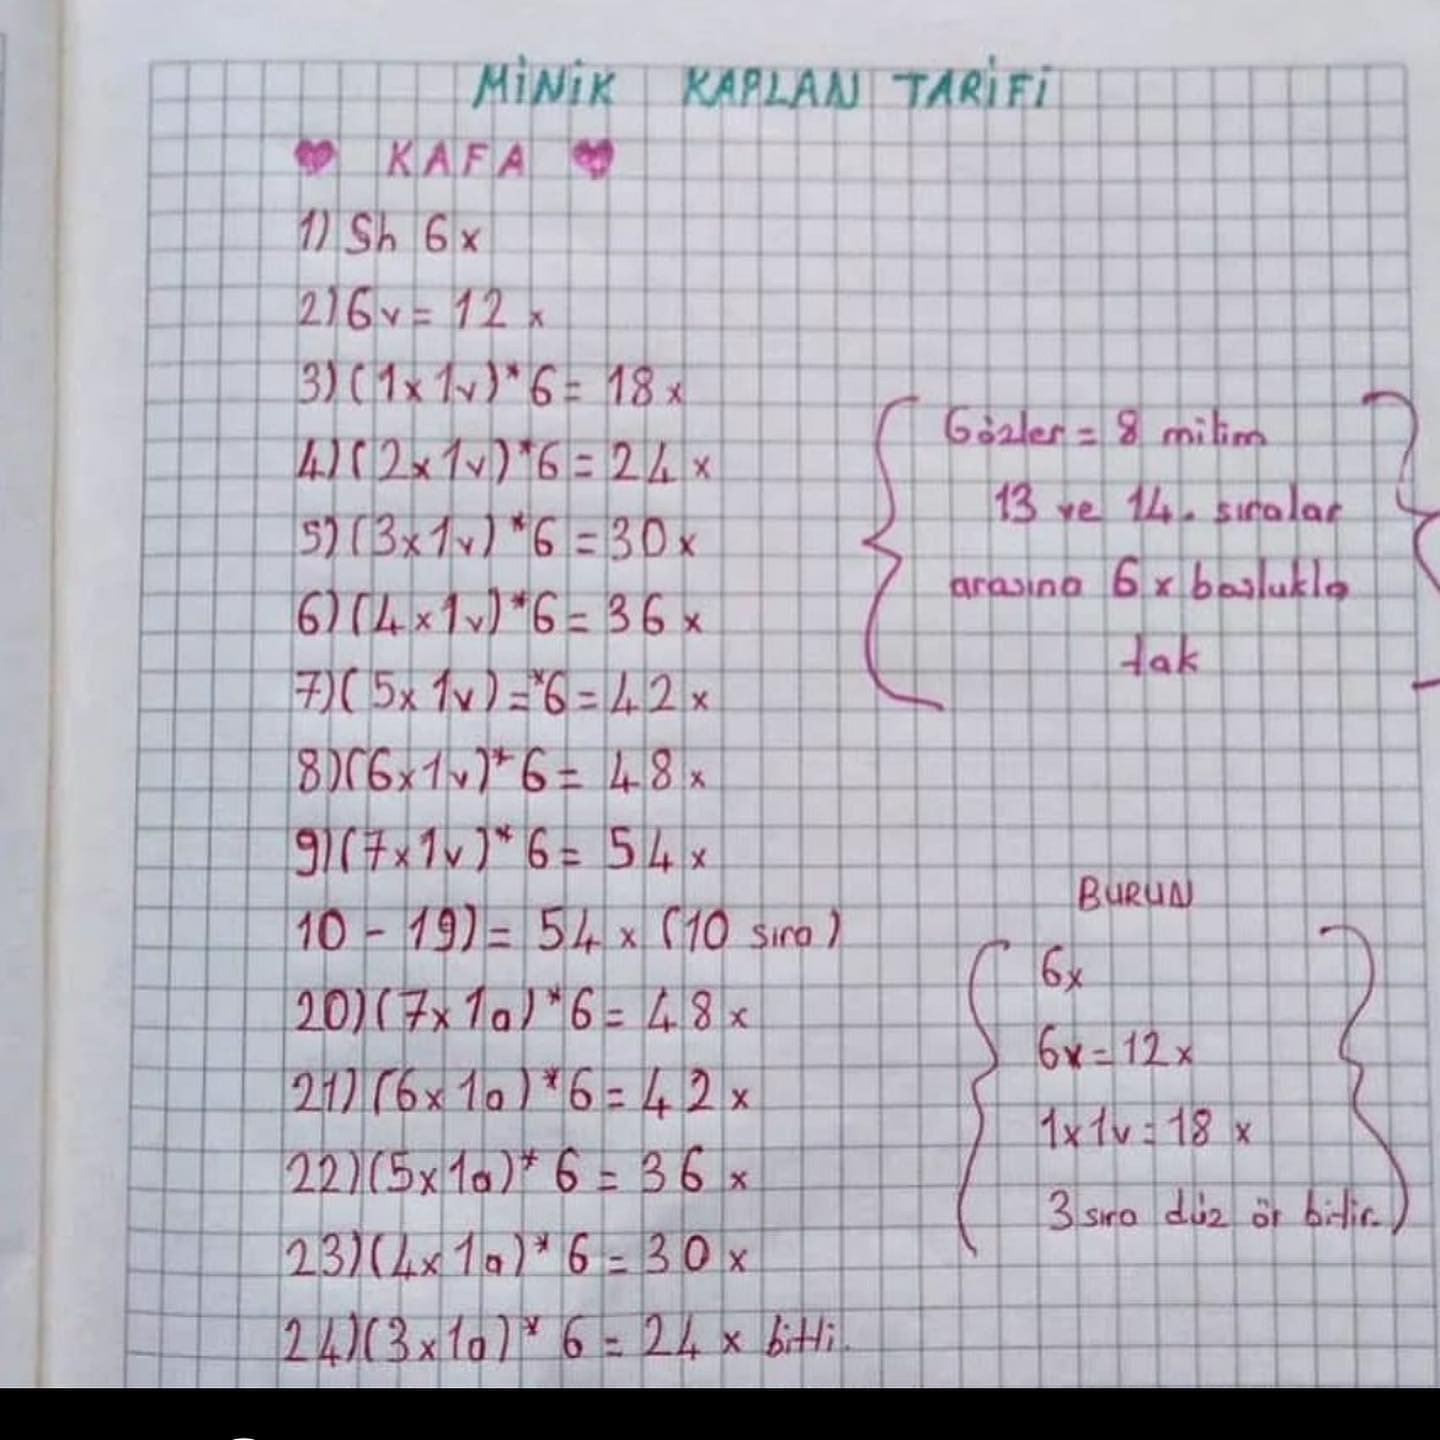 MİNİK KAPLAN TARİFİ
KAFA
1) Sh 6x
2) 6v = 12 x
3) (1x 1v)*6 = 18x
4) (2x 1v)*6 = 24 x
5) (3x1v)*6 = 30x
6) (4x1v)*6 = 36 x
7) (5x 1v) = *6 = 42 x
8) (6x1v)*6 = 48 x
9) (7x1v)*6 = 54 x
10 - 19) = 54 x (10 sıra)
20) (7x 1a)*6 = 48 x
21) (6x 1a)*6 = 42 x
22) (5x1a)* 6 = 36 x
23) (4x 1a)* 6 = 30 x
24) (3x1a)* 6 = 24 x bitti.
Gözler = 8 milim
13 ve 14. sıralar
arasına 6 x boşlukla
tak
BURUN
6x
6v = 12 x
1x1v = 18 x
3 sıra düz ör bitir.